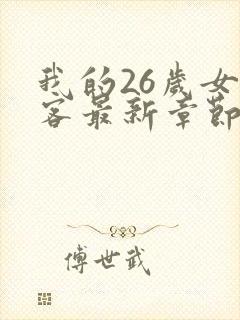 我的26歲女
客最新章節
傅世武